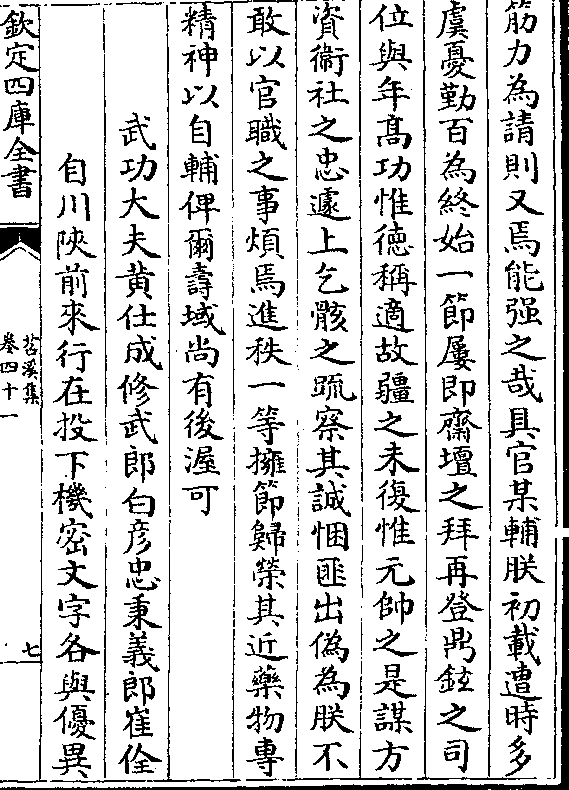 筋力為請則又焉能强之哉具官某輔朕初載遭時多
虞憂勤百為終始一節屢即齋壇之拜再登鼎鉉之司
位與年髙功惟徳稱適故疆之未復惟元帥之是謀方
資衛社之忠遽上乞骸之疏察其誠悃匪出偽為朕不
敢以官職之事煩焉進秩一等擁節歸榮其近藥物專
精神以自輔俾爾壽域尚有後渥可
武功大夫黄仕成修武郎白彦忠秉義郎崔佺
自川陜前來行在投下機密文字各與優異
欽定四庫全書
苕溪集
卷四十一
七